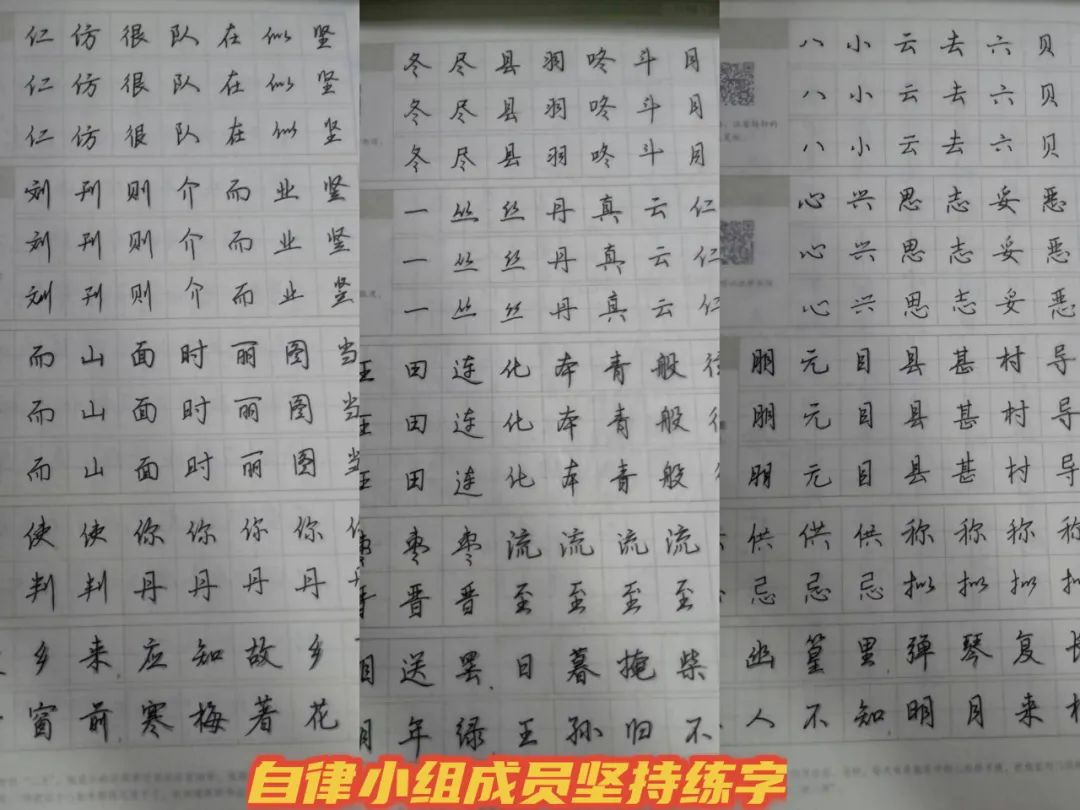 仁仿很队在似坚
仁仿很队在似坚
仁仿很队在似坚
刘刊则介而业竖
刘刊则介而业竖
刘刊则介而业竖
而山面时丽图当
而山面时丽图当
而山面时丽图当
使使你你你你
判判丹丹丹丹
乡来应知故乡
窗前寒梅著花
冬尽县羽咚斗目
冬尽县羽咚斗目
冬尽县羽咚斗目
一丝丝丹真云仁
一丝丝丹真云仁
一丝丝丹真云仁
王田连化本青般
王田连化本青般
王田连化本青般
枣枣流流流流
晋晋至至至至
送罢日暮掩柴
年绿王孙归不
八小云去六贝
八小云去六贝
八小云去六贝
心兴思志妥恶
心兴思志妥恶
心兴思志妥恶
朋元目县甚村导
朋元目县甚村导
朋元目县甚村导
供供供称称称称
忌忌忌拟拟拟拟
幽篁里弹琴复长
人不知明月来相
自律小组成员坚持练字